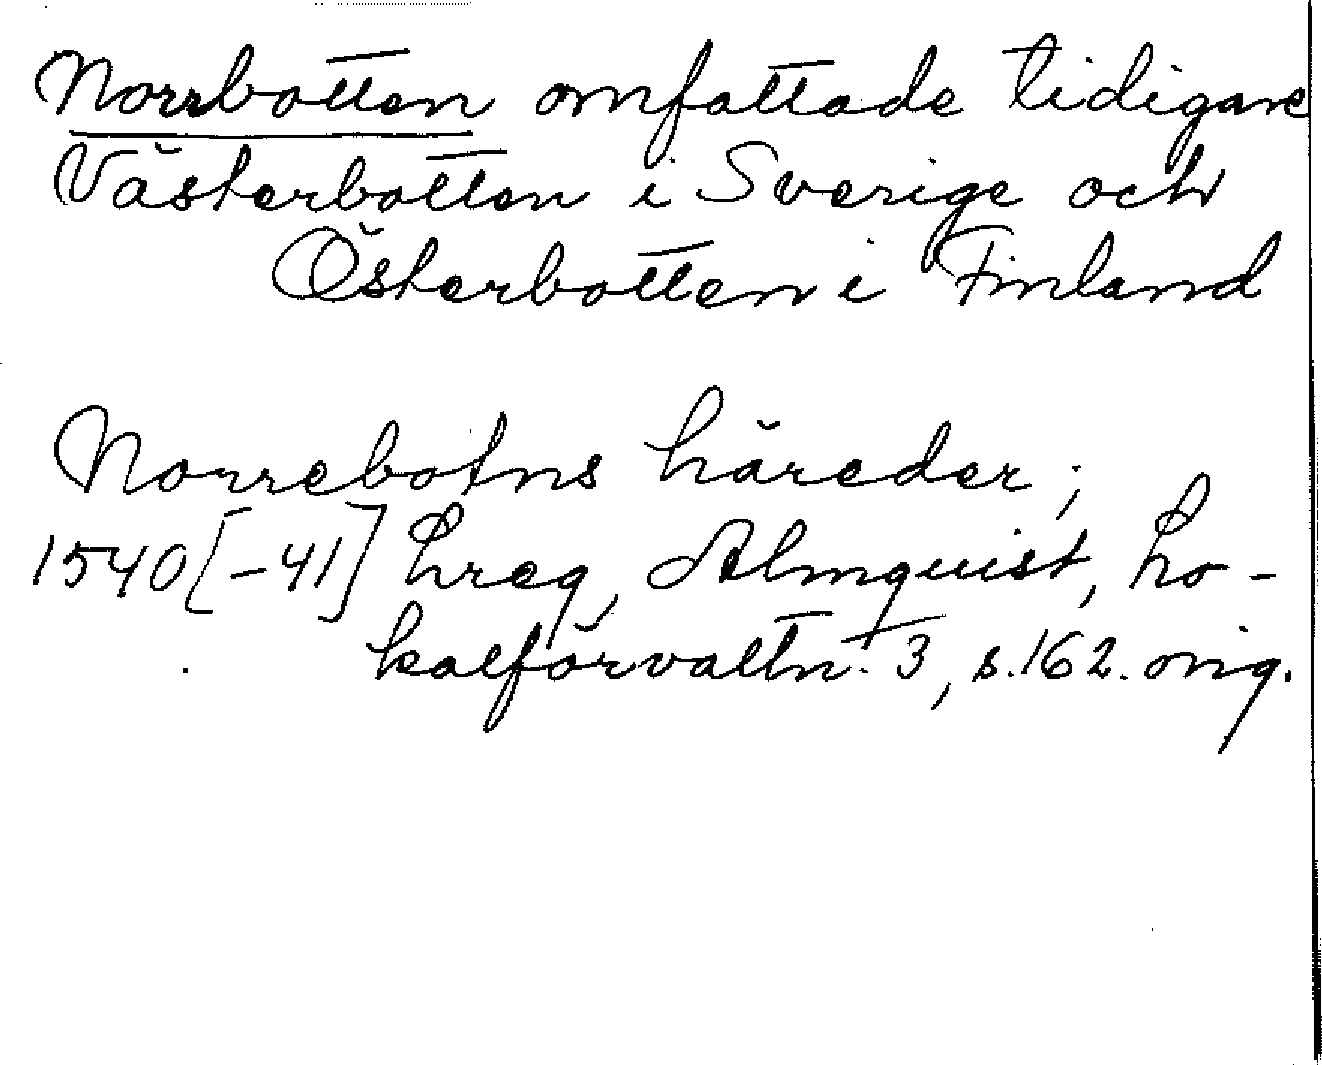 Norrbotten omfattade tidigare
Västerbotten i Sverige och
Österbotten i Finland
Norrebotns häreder;
1540[-41] Lreg, Almquist, Lo-
kalförvaltn. 3, s. 162. orig.